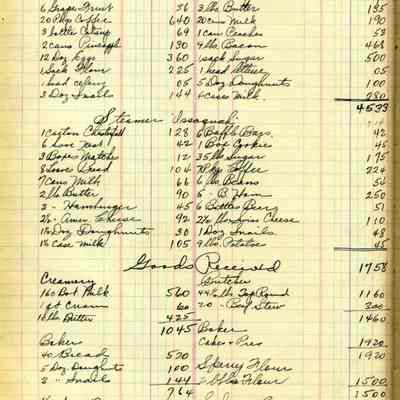 6 Grape Fruit 36 3 lbs Butter 135
20 Pkg Coffee 640 20 cans Milk 190
3 bottle Catsup 69 1 can Peaches 53
2 cans Pineapple 130 lbs Bacon 468
12 Doz Eggs 360 1 sack Sugar 500
1 Sack Flour 225 1 head Lettuce 05
1 head celery 05 5 Doz Doughnuts 100
3 Doz Snails 144 4 case Milk 280
4533
Steamer Issaquah
1 Carton 128 6 Bars 42
6 Yeast 42 1 Box Cookies 45
3 Boxes Matches 12 35 lbs Sugar 175
8 Loaves Bread 104 7 Pkg Coffee 224
7 Cans Milk 66 6 lbs Beans 54
2 lbs Butter 90 5 - B Ham 250
3 - Hamburger 45 6 Bottles 51
2½ - Amer Cheese 92 2½ lbs Swiss Cheese 110
1½ Doz Doughnuts 30 1 Doz Snails 48
1½ Case Milk 105 9 lbs Potatoes 45
Goods Received 1758
Creamery Butcher
160 Bot Milk 560 44½ lbs Top Round 1160
1 gt Cream 60 20 - Boil Stew 300
10 lbs Butter 425 1460
1045 Baker
Baker Cakes & Pies 1920
40 Bread 520 1920
5 Doz Doughnuts 100 Sperry Flour
3 " Snails 144 2 bbls Flour 1500
764 1500